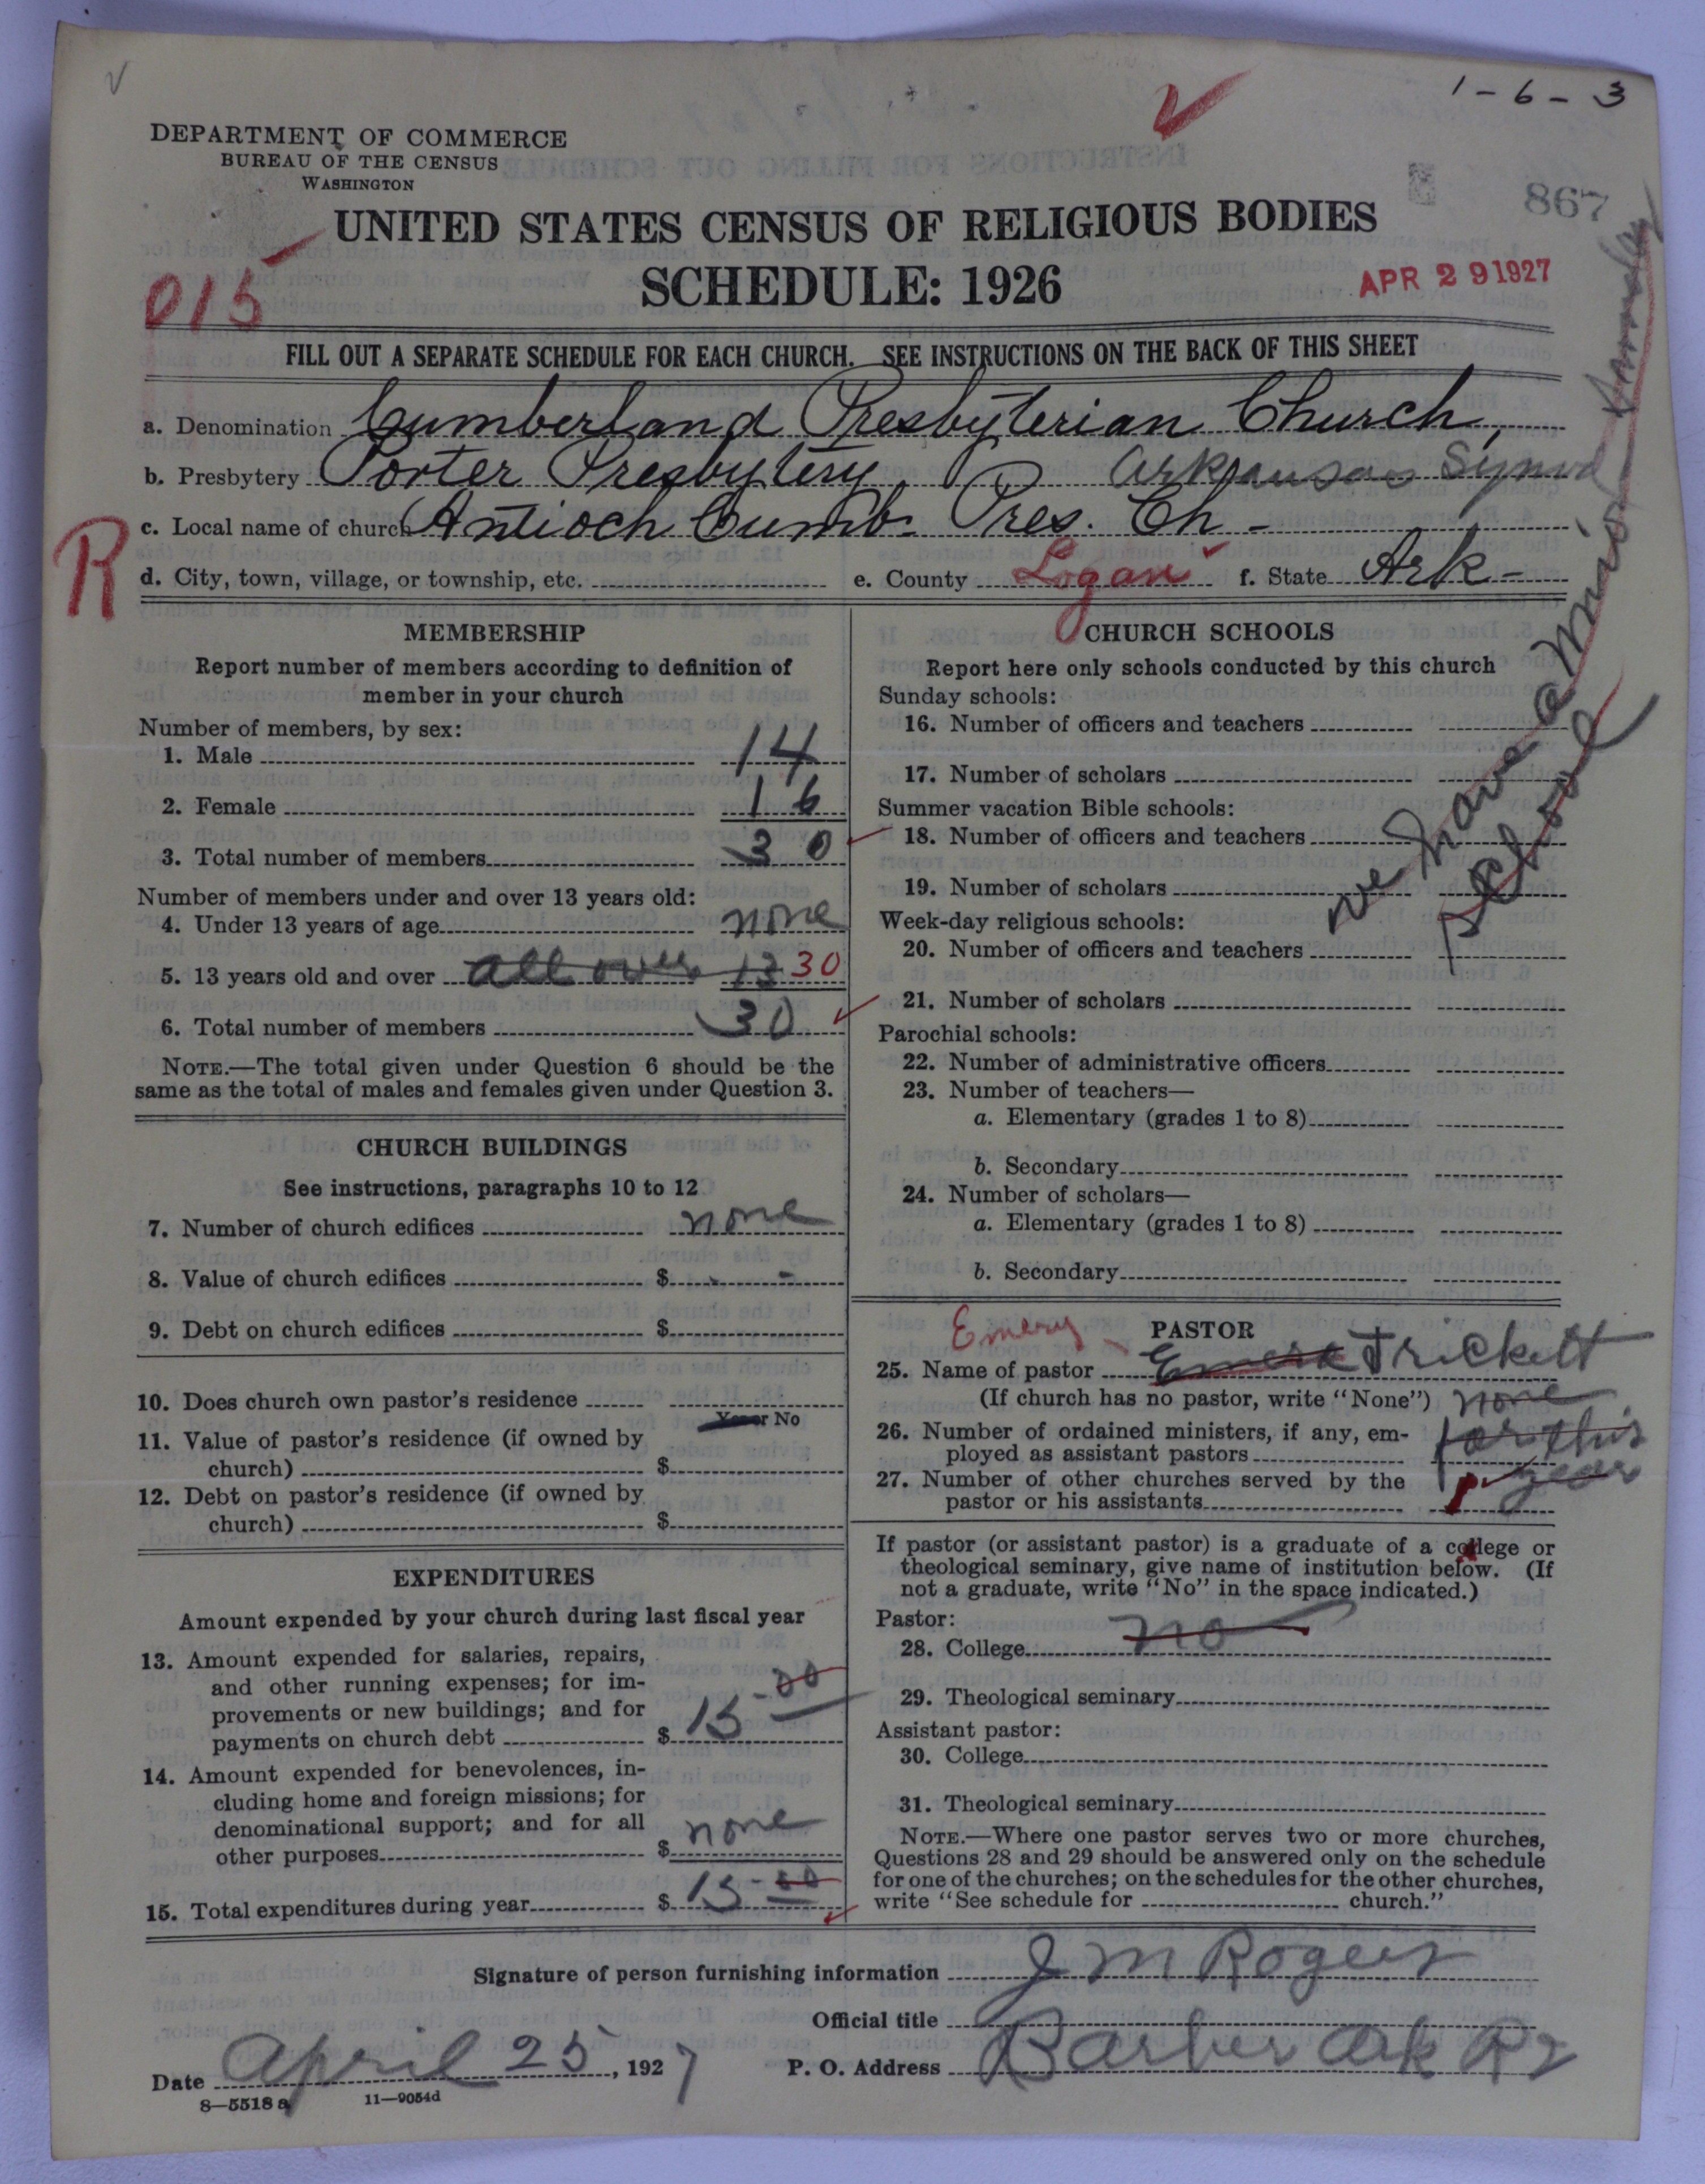 1-6-3
DEPARTMENT OF COMMERCE
BUREAU OF THE CENSUS
WASHINGTON
867
UNITED STATES CENSUS OF RELIGIOUS BODIES
SCHEDULE: 1926
APR 29 1927
015
FILL OUT A SEPARATE SCHEDULE FOR EACH CHURCH. SEE INSTRUCTIONS ON THE BACK OF THIS SHEET
a. Denomination Cumberland Presbyterian Church,
b. Presbytery Porter Presbytery Arkansas Synod
c. Local name of church Antioch Cumb. Pres. Ch-
R
d. City, town, village, or township, etc. e. County Logan f. State Ark-
MEMBERSHIP
Report number of members according to definition of
member in your church
Number of members, by sex:
1. Male 14
2. Female 16
3. Total number of members 30
Number of members under and over 13 years old:
4. Under 13 years of age none
5. 13 years old and over all over 13 30
6. Total number of members 30
NOTE.—The total given under Question 6 should be the
same as the total of males and females given under Question 3.
CHURCH BUILDINGS
See instructions, paragraphs 10 to 12
7. Number of church edifices none
8. Value of church edifices $ - -
9. Debt on church edifices $
10. Does church own pastor's residence
Yes or No
11. Value of pastor's residence (if owned by
church) $
12. Debt on pastor's residence (if owned by
church) $
EXPENDITURES
Amount expended by your church during last fiscal year
13. Amount expended for salaries, repairs,
and other running expenses; for im-
provements or new buildings; and for
payments on church debt $ 15-00
14. Amount expended for benevolences, in-
cluding home and foreign missions; for
denominational support; and for all
other purposes $ none
15. Total expenditures during year $ 15-00
CHURCH SCHOOLS
Report here only schools conducted by this church
Sunday schools:
16. Number of officers and teachers
17. Number of scholars
Summer vacation Bible schools:
18. Number of officers and teachers
19. Number of scholars
Week-day religious schools:
20. Number of officers and teachers
21. Number of scholars
we have a Union
School
Parochial schools:
22. Number of administrative officers
23. Number of teachers—
a. Elementary (grades 1 to 8)
b. Secondary
24. Number of scholars—
a. Elementary (grades 1 to 8)
b. Secondary
PASTOR
Emery
25. Name of pastor Trickett
(If church has no pastor, write "None") none
26. Number of ordained ministers, if any, em-
ployed as assistant pastors for this
27. Number of other churches served by the year
pastor or his assistants
If pastor (or assistant pastor) is a graduate of a college or
theological seminary, give name of institution below. (If
not a graduate, write "No" in the space indicated.)
Pastor:
28. College no
29. Theological seminary
Assistant pastor:
30. College
31. Theological seminary
NOTE.—Where one pastor serves two or more churches,
Questions 28 and 29 should be answered only on the schedule
for one of the churches; on the schedules for the other churches,
write "See schedule for church."
Signature of person furnishing information J M Rogers
Official title
Date April 25, 1927 P. O. Address Barber Ark R2
8—5518 a 11—9054d